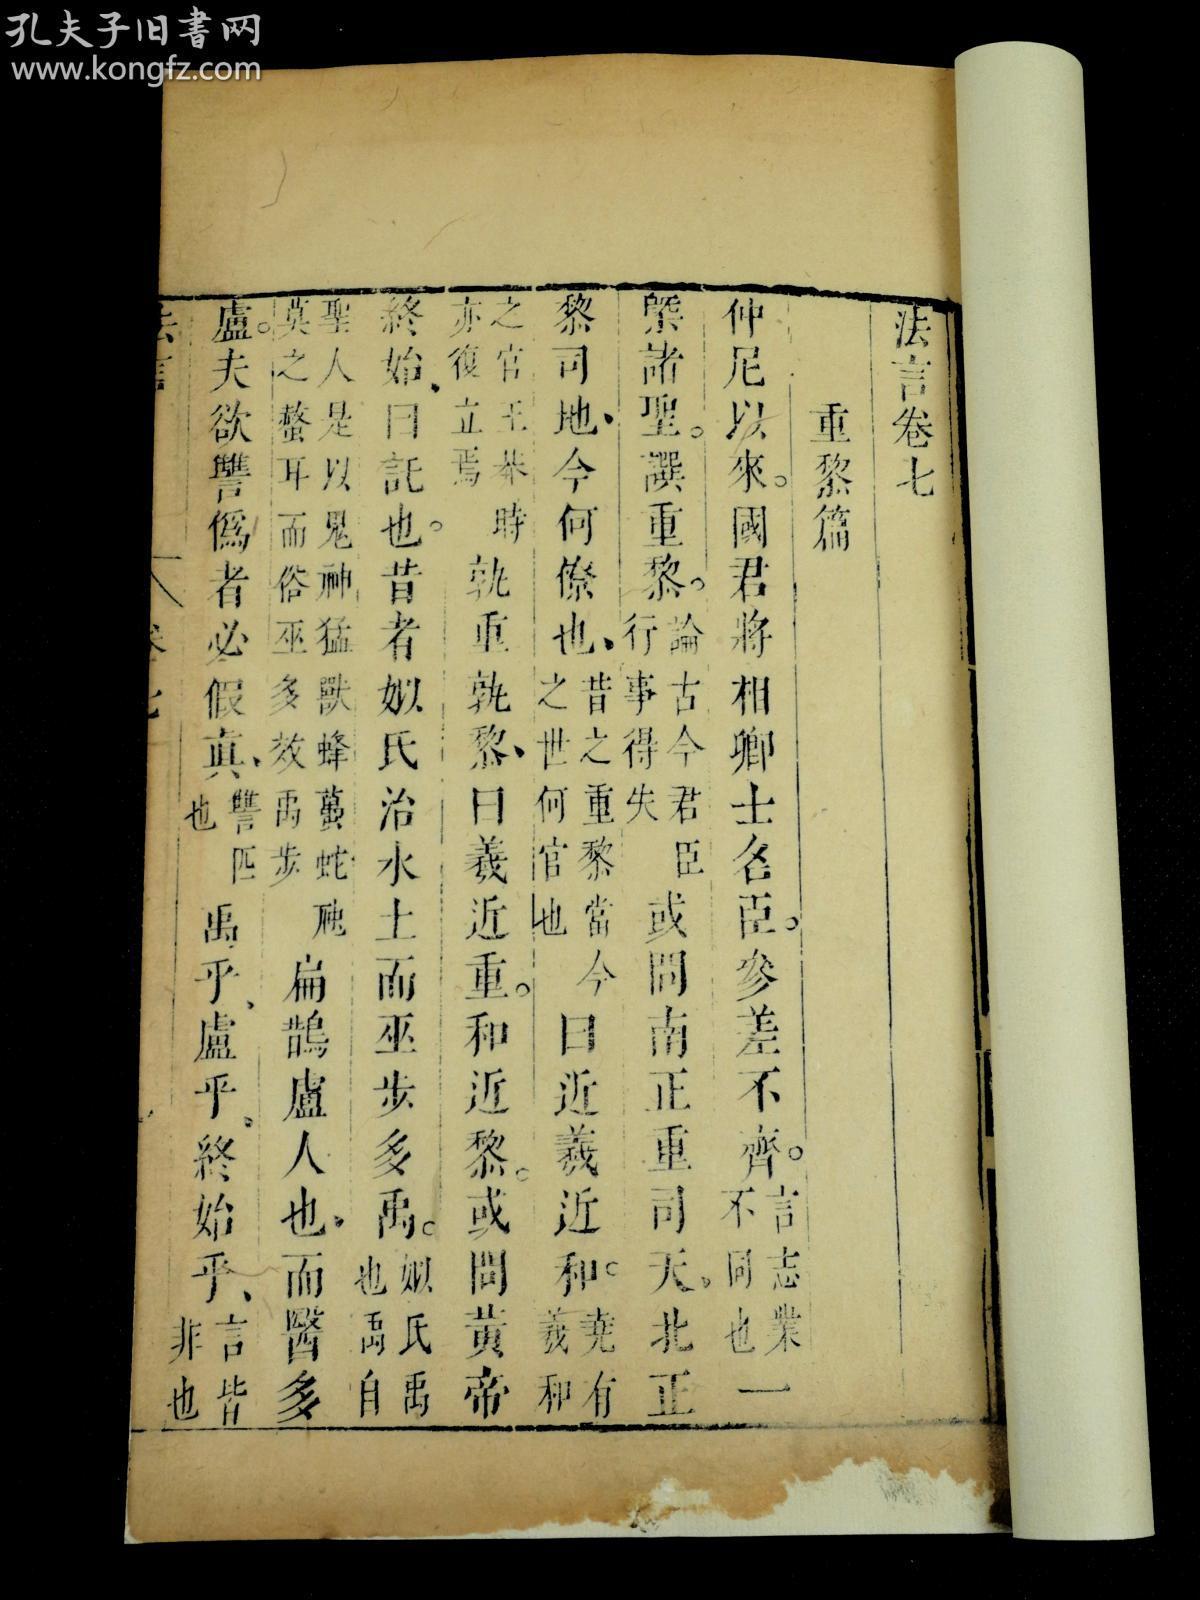 孔夫子旧書网
www.kongfz.com
法言卷七
重黎篇
仲尼以來。國君將相卿士名臣。參差不齊。言志業不同也一
槩諸聖。譔重黎。論古今君臣行事得失或問南正重司天、北正
黎司地、今何僚也、昔之重黎當今之世何官也曰近羲近和。堯有羲和
之官王莽時亦復立焉孰重孰黎、曰羲近重。和近黎。或問黃帝
終始、曰託也。昔者姒氏治水土而巫步多禹。姒氏禹也禹自
聖人是以鬼神猛獸蜂蠆蛇虺莫之螫耳而俗巫多效禹步扁鵲盧人也、而醫多
盧。夫欲讐僞者必假真、讐匹也禹乎、盧乎、終始乎、言皆非也
法言 卷七